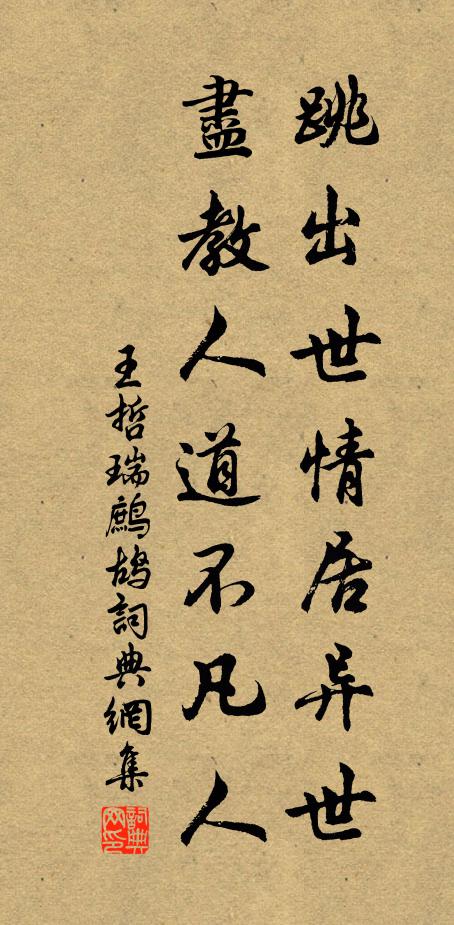 跳出世情居异世
盡教人道不凡人
王哲瑞鷓鴣詞典網集
詞典网印